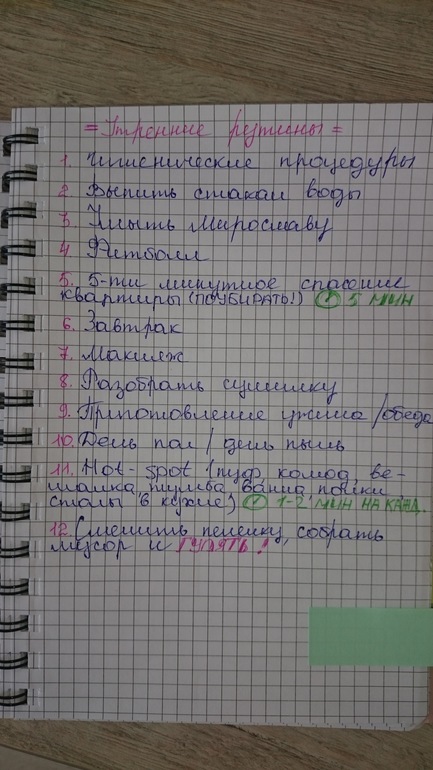 = Утренние рутины =
1. Гигиенические процедуры
2. Выпить стакан воды
3. Умыть Мирославу
4. Фитболл
5. 5-ти минутное спасение
квартиры (ПОУБИРАТЬ!) 5 МИН
6. Завтрак
7. Макияж
8. Разобрать сушилку
9. Приготовление ужина/обеда
10. День пол / день пыль
11. Hot-spot (пуф, комод, ве-
шалка, тумба, ванна, полки,
столы в кухне) 1-2 МИН НА КАЖД.
12. Сменить пеленку, собрать
мусор и ГУЛЯТЬ!